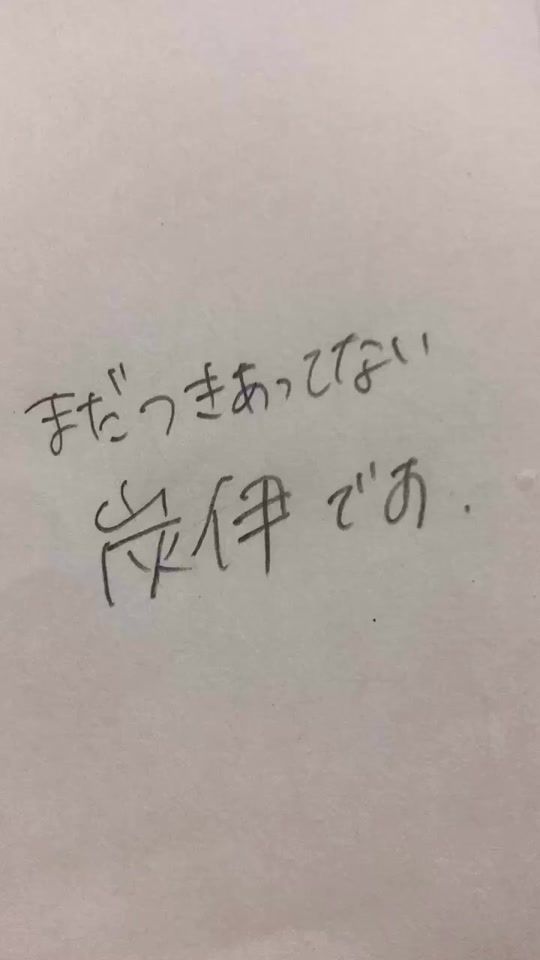 まだつきあってない
炭伊です.